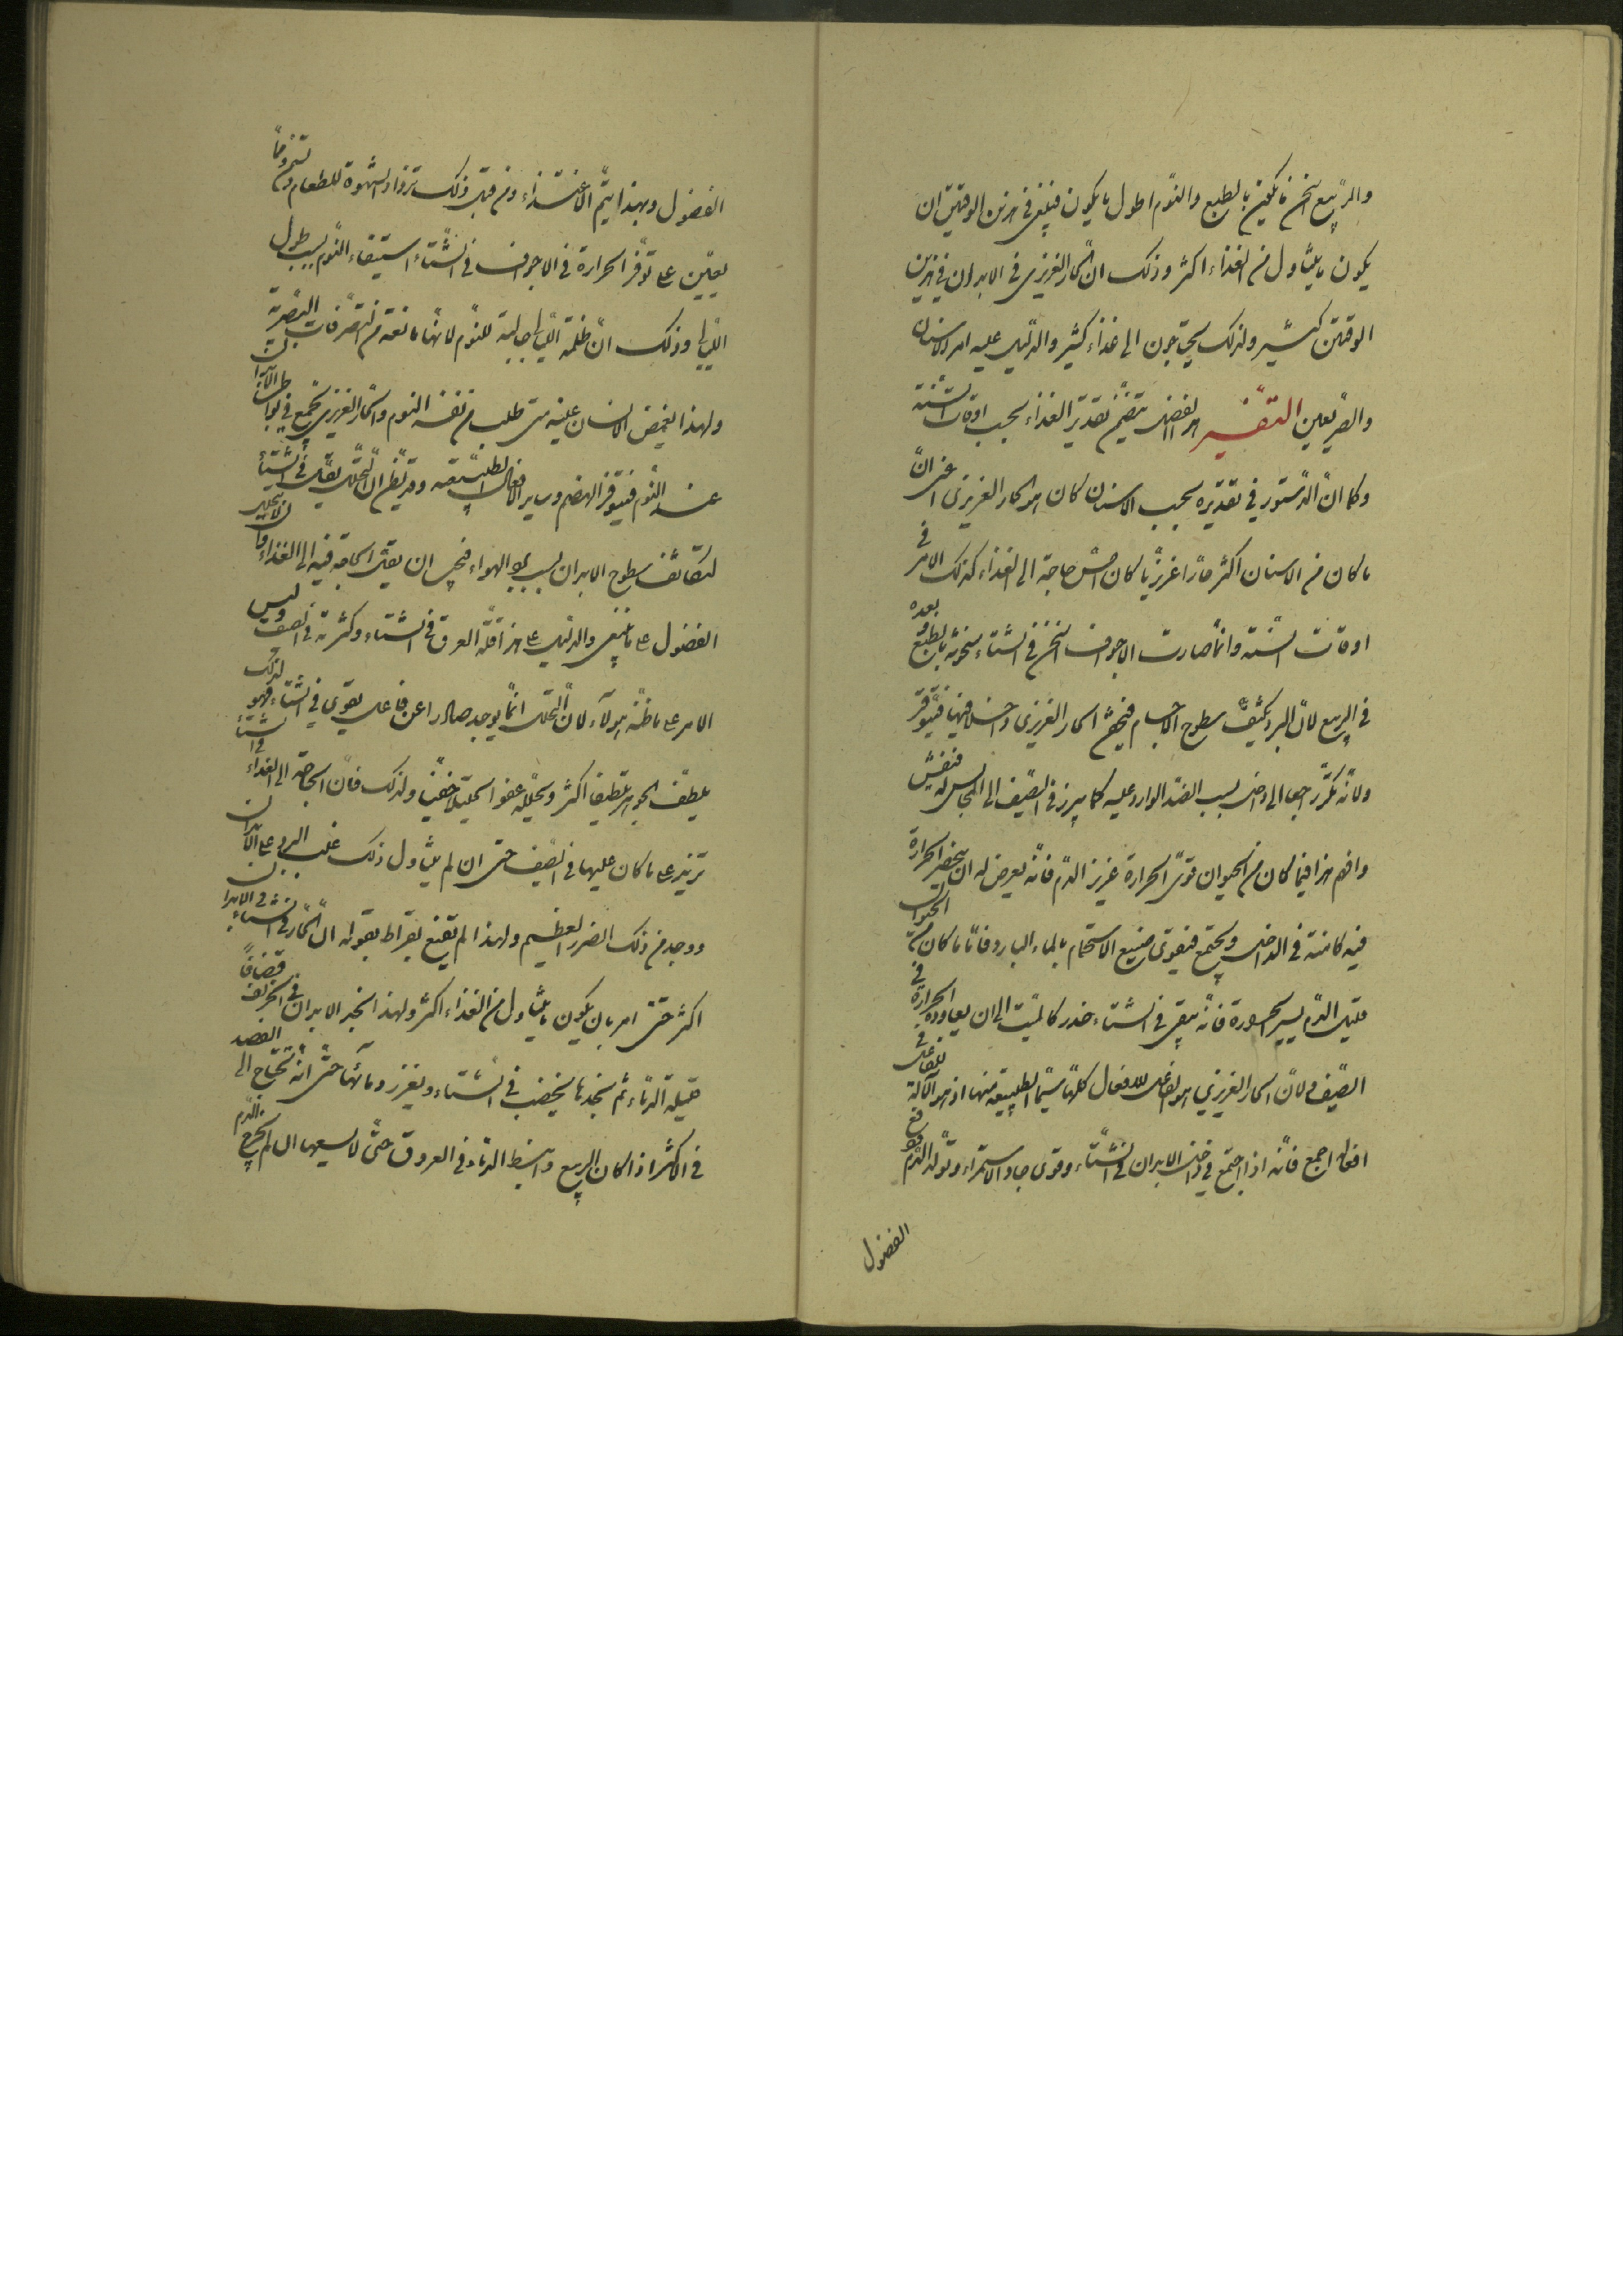 والربيع اسخن ما يكون بالطبع والنوم اطول ما يكون فينبغى فى هذين الوقتين ان
يكون ما يتناول من الغذاء اكثر وذلك ان الحار الغريزى فى الابدان فى هذين
الوقتين كثير ولذلك يحتاجون الى غذاء كثير والدليل عليه امر الاسنان
والصريعين التفسير هذا الفصل يتضمن تقدير الغذاء بحسب اوقات السنة
وكما ان الدستور فى تقديره بحسب الاسنان كان هو الحار الغريزى اعنى ان
ما كان من الاسنان اكثر حارا غريزيا كان امس حاجة الى الغذاء كذلك الامر فى
اوقات السنة وانما صارت الاجواف اسخن فى الشتاء سخونة بالطبع وبعده
فى الربيع لان البرد يكثف سطوح الاجسام فيحتقن الحار الغريزى داخلا فيها فيتوفر
ولانه يكر راجعا الى داخل بسبب الضد الوارد عليه كما يبرز فى الصيف الى المجانس له فينفش
وافهم هذا فيما كان من الحيوان قوى الحرارة غزير الدم فانه يعرض له ان ينحصر الحرارة
فيه كامنة فى الداخل ويجتمع فيقوى صنيع الاستحمام بالماء البارد فاما ما كان من الحيوان
قليل الدم يسير الحرارة فانه يبقى فى الشتاء خدر كالميت الى ان يعاوده الحرارة فى
الصيف ولان الحار الغريزى هو الفاعل للافعال كلها سيما الطبيعية منها اذ هو آلالة للفاعل فى
افعاله اجمع فانه اذا اجتمع فى داخل الابدان فى الشتاء وقوى جاد الاستمراء وتولد الدم ودفع
الفضول
الفضول وبهذا يتم الاغتذاء ومن قبل ذلك تزداد الشهوة للطعام وتنمو ومما
يعين على توفر الحرارة فى الاجواف فى الشتاء استيفاء النوم بسبب طول
الليل وذلك ان ظلمة الليل جالبة للنوم لانها مانعة من التصرفات البصرية
ولهذا يغمض الانسان عينيه متى طلب من نفسه النوم والحار الغريزى يجتمع فى بواطن الابدان
عند النوم فيتوفر الهضم وساير الافعال الطبيعية وقد يظن ان التحلل يقل فى الشتاء
لتكاثف سطوح الابدان بسبب برد الهواء فيجب ان يقل الحاجة فيه الى الغذاء وان لا يتحلل
الفضول على ما ينبغى والدليل على هذا قلة العرق فى الشتاء وكثرته فى الصيف وليس
الامر على ما ظنه هولاء لان التحلل انما يوجد صادرا عن فاعل يقوى فى الشتاء فهو لذلك
يلطف الجوهر تلطيفا اكثر ويحلله عفوا تحليلا خفيا ولذلك فان الحاجة الى الغذاء فى الشتاء
تزيد على ما كان عليها فى الصيف حتى ان لم يتناول ذلك غلب البرد على الابدان
ووجد من ذلك الضرر العظيم ولهذا لم يقنع بقراط بقوله ان الحار فى الشتاء فى الابدان
اكثر حتى امر بان يكون ما يتناول من الغذاء اكثر ولهذا نجد الابدان فى الخريف قضافا
قليلة الدماء ثم نجدها يخصب فى الشتاء ويغزر دمائها حتى انه تحتاج الى الفصد
فى الاكثر اذا كان الربيع وانبسط الدماء فى العروق حتى لا يسعها ان لم يخرج الدم